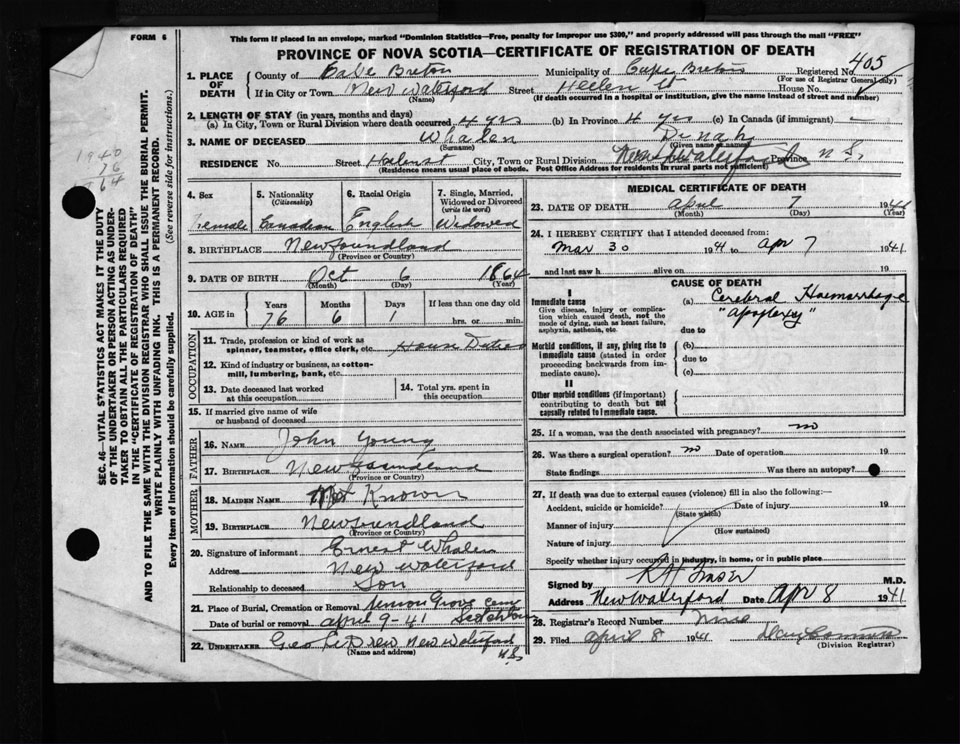 FORM 6
This form if placed in an envelope, marked "Dominion Statistics—Free, penalty for improper use $300," and properly addressed will pass through the mail "FREE"
PROVINCE OF NOVA SCOTIA—CERTIFICATE OF REGISTRATION OF DEATH
1. PLACE OF DEATH
County of Cape Breton Municipality of Cape Breton Registered No. 405
(For use of Registrar General only)
If in City or Town New Waterford Street Heelen St House No.
(Name) (If death occurred in a hospital or institution, give the name instead of street and number)
2. LENGTH OF STAY (in years, months and days)
(a) In City, Town or Rural Division where death occurred 4 yrs (b) In Province 4 yrs (c) In Canada (if immigrant) —
3. NAME OF DECEASED Whalen Dinah
(Surname) (Given name or names)
RESIDENCE No. Street Helenst City, Town or Rural Division New Waterford Province N S.
(Residence means usual place of abode. Post Office Address for residents in rural parts not sufficient)
1940
76
1864
4. Sex Female
5. Nationality (Citizenship) Canadian
6. Racial Origin English
7. Single, Married, Widowed or Divorced (write the word) Widowed
8. BIRTHPLACE Newfoundland
(Province or Country)
9. DATE OF BIRTH Oct 6 1864
(Month) (Day) (Year)
10. AGE in Years Months Days If less than one day old
76 6 1 hrs. or min.
OCCUPATION
11. Trade, profession or kind of work as spinner, teamster, office clerk, etc. House Duties
12. Kind of industry or business, as cotton-mill, lumbering, bank, etc.
13. Date deceased last worked at this occupation
14. Total yrs. spent in this occupation
15. If married give name of wife or husband of deceased
FATHER
16. NAME John Young
17. BIRTHPLACE Newfoundland
(Province or Country)
MOTHER
18. MAIDEN NAME Not Known
19. BIRTHPLACE Newfoundland
(Province or Country)
20. Signature of informant Ernest Whalen
Address New Waterford
Relationship to deceased Son
21. Place of Burial, Cremation or Removal Grove Cem
Date of burial or removal April 9-41
22. UNDERTAKER Geo New Waterford
(Name and address) N S.
MEDICAL CERTIFICATE OF DEATH
23. DATE OF DEATH April 7 1941
(Month) (Day) (Year)
24. I HEREBY CERTIFY that I attended deceased from:
Mar 30 1941 to Apr 7 1941
and last saw h alive on 19
CAUSE OF DEATH
I
Immediate cause
Give disease, injury or complication which caused death, not the mode of dying, such as heart failure, asphyxia, asthenia, etc.
(a) Cerebral Haemorrhage
"apoplexy"
due to
Morbid conditions, if any, giving rise to immediate cause (stated in order proceeding backwards from immediate cause).
(b)
due to
(c)
II
Other morbid conditions (if important) contributing to death but not causally related to immediate cause.
25. If a woman, was the death associated with pregnancy? no
26. Was there a surgical operation? no Date of operation 19
State findings Was there an autopsy?
27. If death was due to external causes (violence) fill in also the following:—
Accident, suicide or homicide? Date of injury 19
(State which)
Manner of injury
(How sustained)
Nature of injury
Specify whether injury occurred in industry, in home, or in public place
Signed by M.D.
Address New Waterford Date Apr 8 1941
28. Registrar's Record Number
29. Filed April 8 1941
(Division Registrar)
SEC. 46—VITAL STATISTICS ACT MAKES IT THE DUTY OF THE UNDERTAKER OR PERSON ACTING AS UNDERTAKER TO OBTAIN ALL THE PARTICULARS REQUIRED IN THE "CERTIFICATE OF REGISTRATION OF DEATH"
AND TO FILE THE SAME WITH THE DIVISION REGISTRAR WHO SHALL ISSUE THE BURIAL PERMIT.
WRITE PLAINLY WITH UNFADING INK. THIS IS A PERMANENT RECORD.
Every item of Information should be carefully supplied. (See reverse side for instructions.)